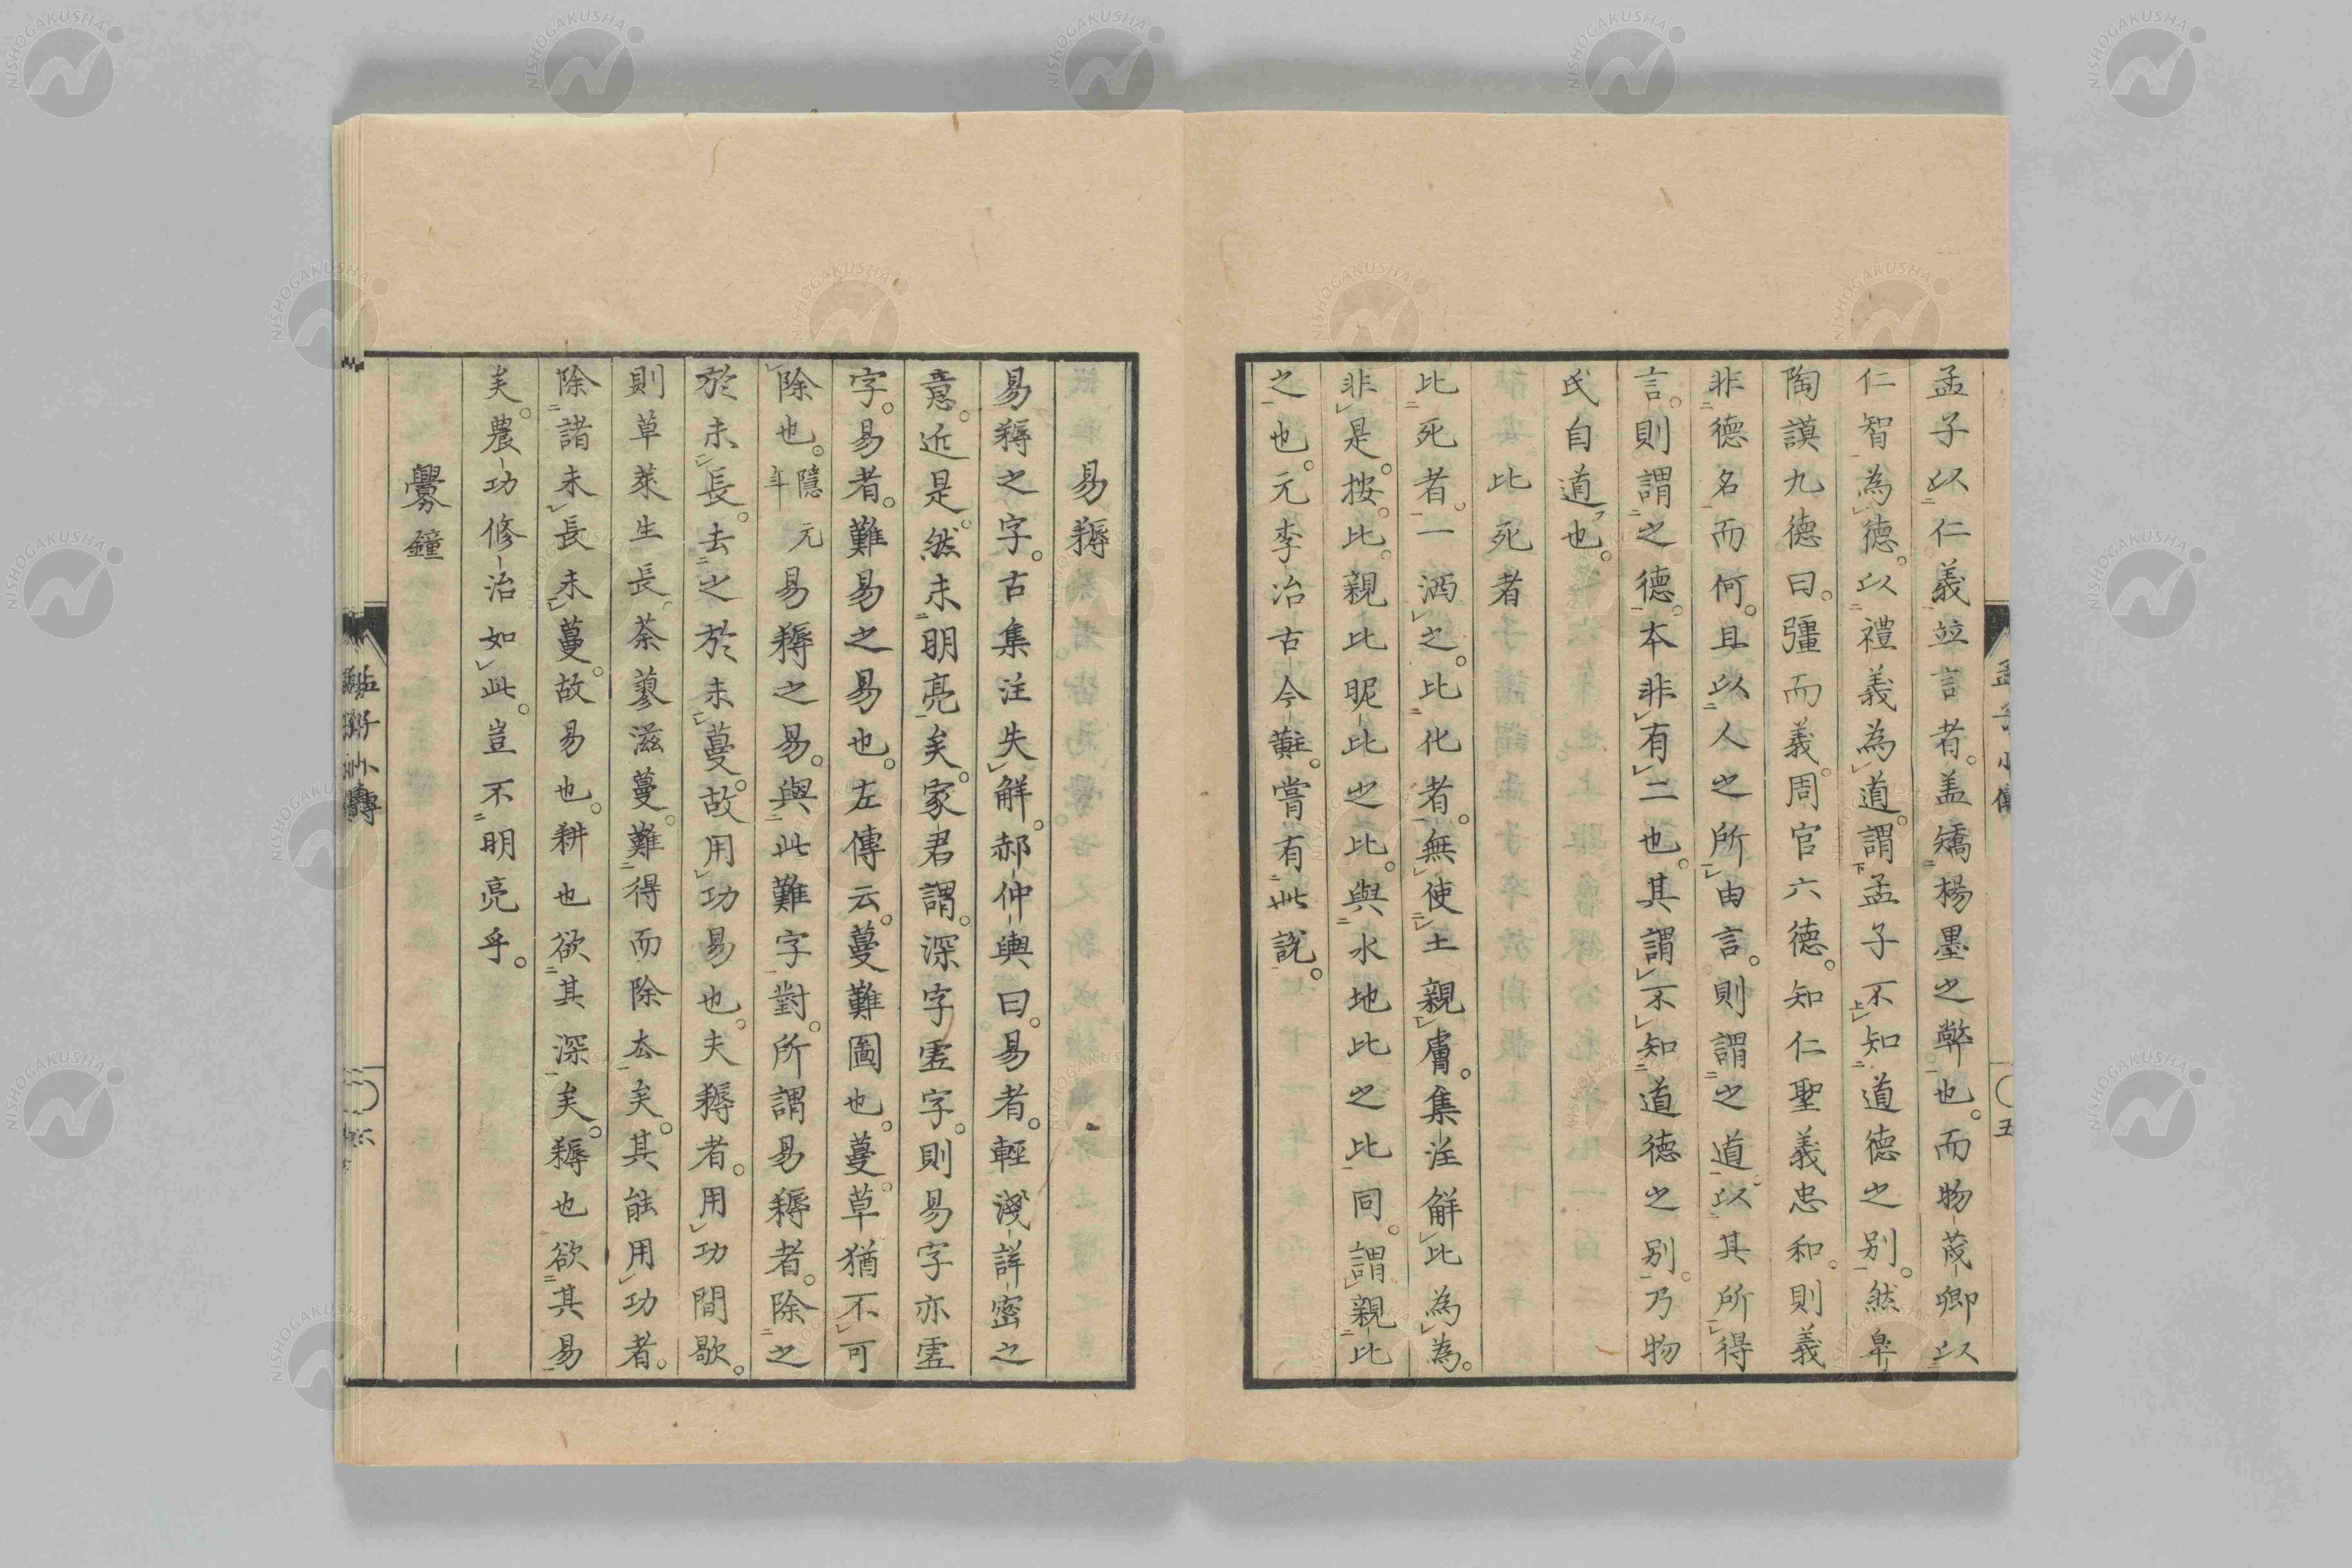 孟子以仁義竝言者。盖矯楊墨之弊也。而物茂卿以
仁智為德。以禮義為道。謂孟子不知道德之別。然皐
陶謨九德曰。彊而義。周官六德。知仁聖義忠和。則義
非德名而何。且以人之所由言。則謂之道。以其所得
言。則謂之德。本非有二也。其謂不知道德之別。乃物
氏自道也。
比死者
比死者。一洒之。比化者。無使土親膚。集注解比為為。
非是。按。比。親比昵比之比。與水地比之比同。謂親比
之也。元李冶古今黈。嘗有此說。
孟子小傳
五
易耨
易耨之字。古集注失解。郝仲輿曰。易者。輕淺詳密之
意。近是。然未明亮矣。家君謂。深字虛字。則易字亦虛
字。易者。難易之易也。左傳云。蔓難圖也。蔓草猶不可
除也。隱元年易耨之易。與此難字對。所謂易耨者。除之
於未長。去之於未蔓。故用功易也。夫耨者。用功間歇。
則草萊生長。荼蓼滋蔓。難得而除去矣。其能用功者。
除諸未長未蔓。故易也。耕也欲其深矣。耨也欲其易
矣。農功修治如此。豈不明亮乎。
釁鐘
NISHOGAKUSHA